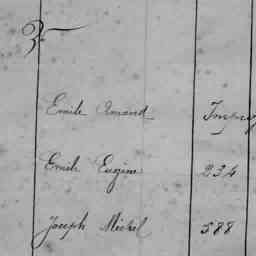 Emile Amand
Emile Eugène 234
Joseph Michel 588